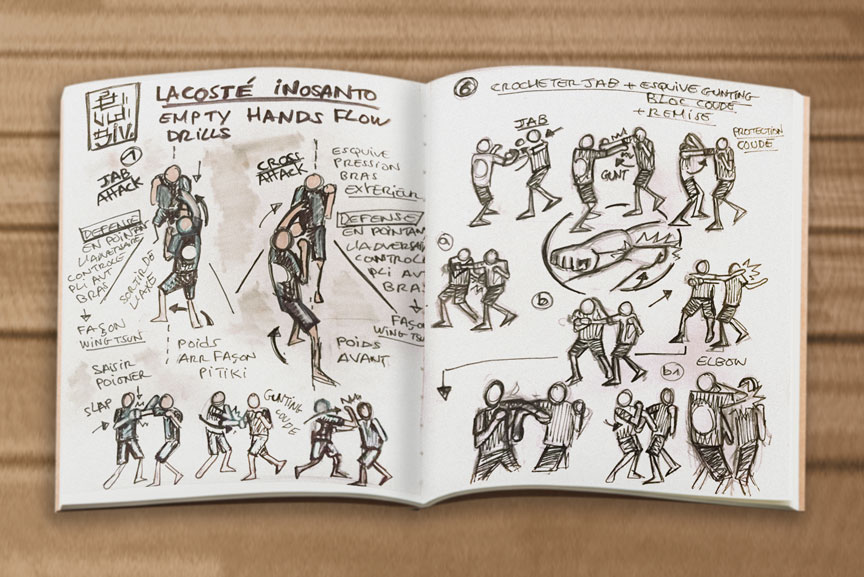 LACOSTÉ INOSANTO
EMPTY HANDS FLOW
DRILLS
1
JAB
ATTACK
DEFENSE
EN POINTAN
L'ADVERSAIRE
CONTROLE
PLI AVT
BRAS
FAÇON
WING TSUN
SORTIR DE
L'AXE
POIDS
ARR FAÇON
PITIKI
CROSS
ATTACK
ESQUIVE
PRESSION
BRAS
EXTERIEUR
DEFENSE
EN POINTAN
L'ADVERSAI
CONTROL
PLI AV
BRAS
FAÇO
WING TSUN
POIDS
AVANT
SAISIR
POIGNER
SLAP
GUNTING
COUDE
6
CROCHETER JAB + ESQUIVE GUNTING
BLOC COUDE
+ REMISE
JAB
GUNT
PROTECTION
COUDE
a
b
b1
ELBOW